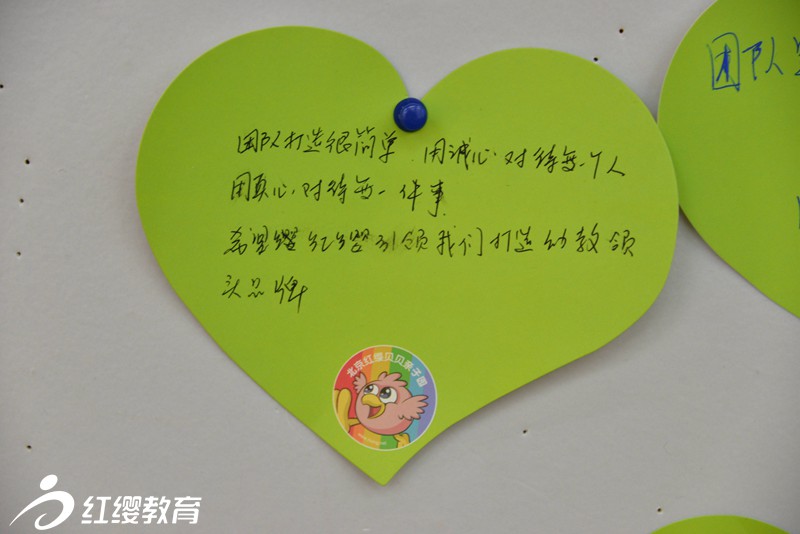 团队打造很简单 用诚心对待每一个人
用真心对待每一件事
希望红缨引领我们打造幼教领
头品牌
北京红缨贝贝亲子园
团队
红缨教育